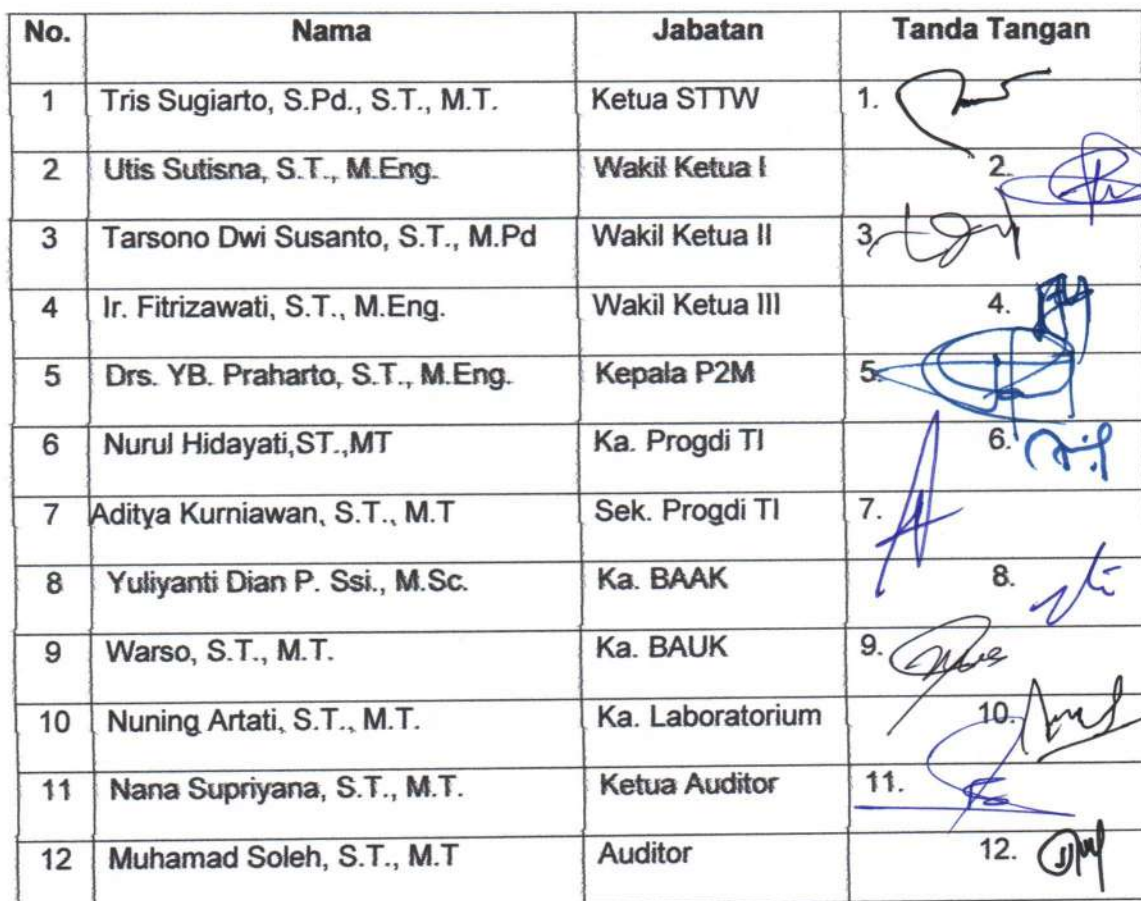 No. Nama Jabatan Tanda Tangan
1 Tris Sugiarto, S.Pd., S.T., M.T. Ketua STTW 1.
2 Utis Sutisna, S.T., M.Eng. Wakil Ketua I 2.
3 Tarsono Dwi Susanto, S.T., M.Pd Wakil Ketua II 3.
4 Ir. Fitrizawati, S.T., M.Eng. Wakil Ketua III 4.
5 Drs. YB. Praharto, S.T., M.Eng. Kepala P2M 5.
6 Nurul Hidayati,ST.,MT Ka. Progdi TI 6.
7 Aditya Kurniawan, S.T., M.T Sek. Progdi TI 7.
8 Yuliyanti Dian P. Ssi., M.Sc. Ka. BAAK 8.
9 Warso, S.T., M.T. Ka. BAUK 9.
10 Nuning Artati, S.T., M.T. Ka. Laboratorium 10.
11 Nana Supriyana, S.T., M.T. Ketua Auditor 11.
12 Muhamad Soleh, S.T., M.T Auditor 12.